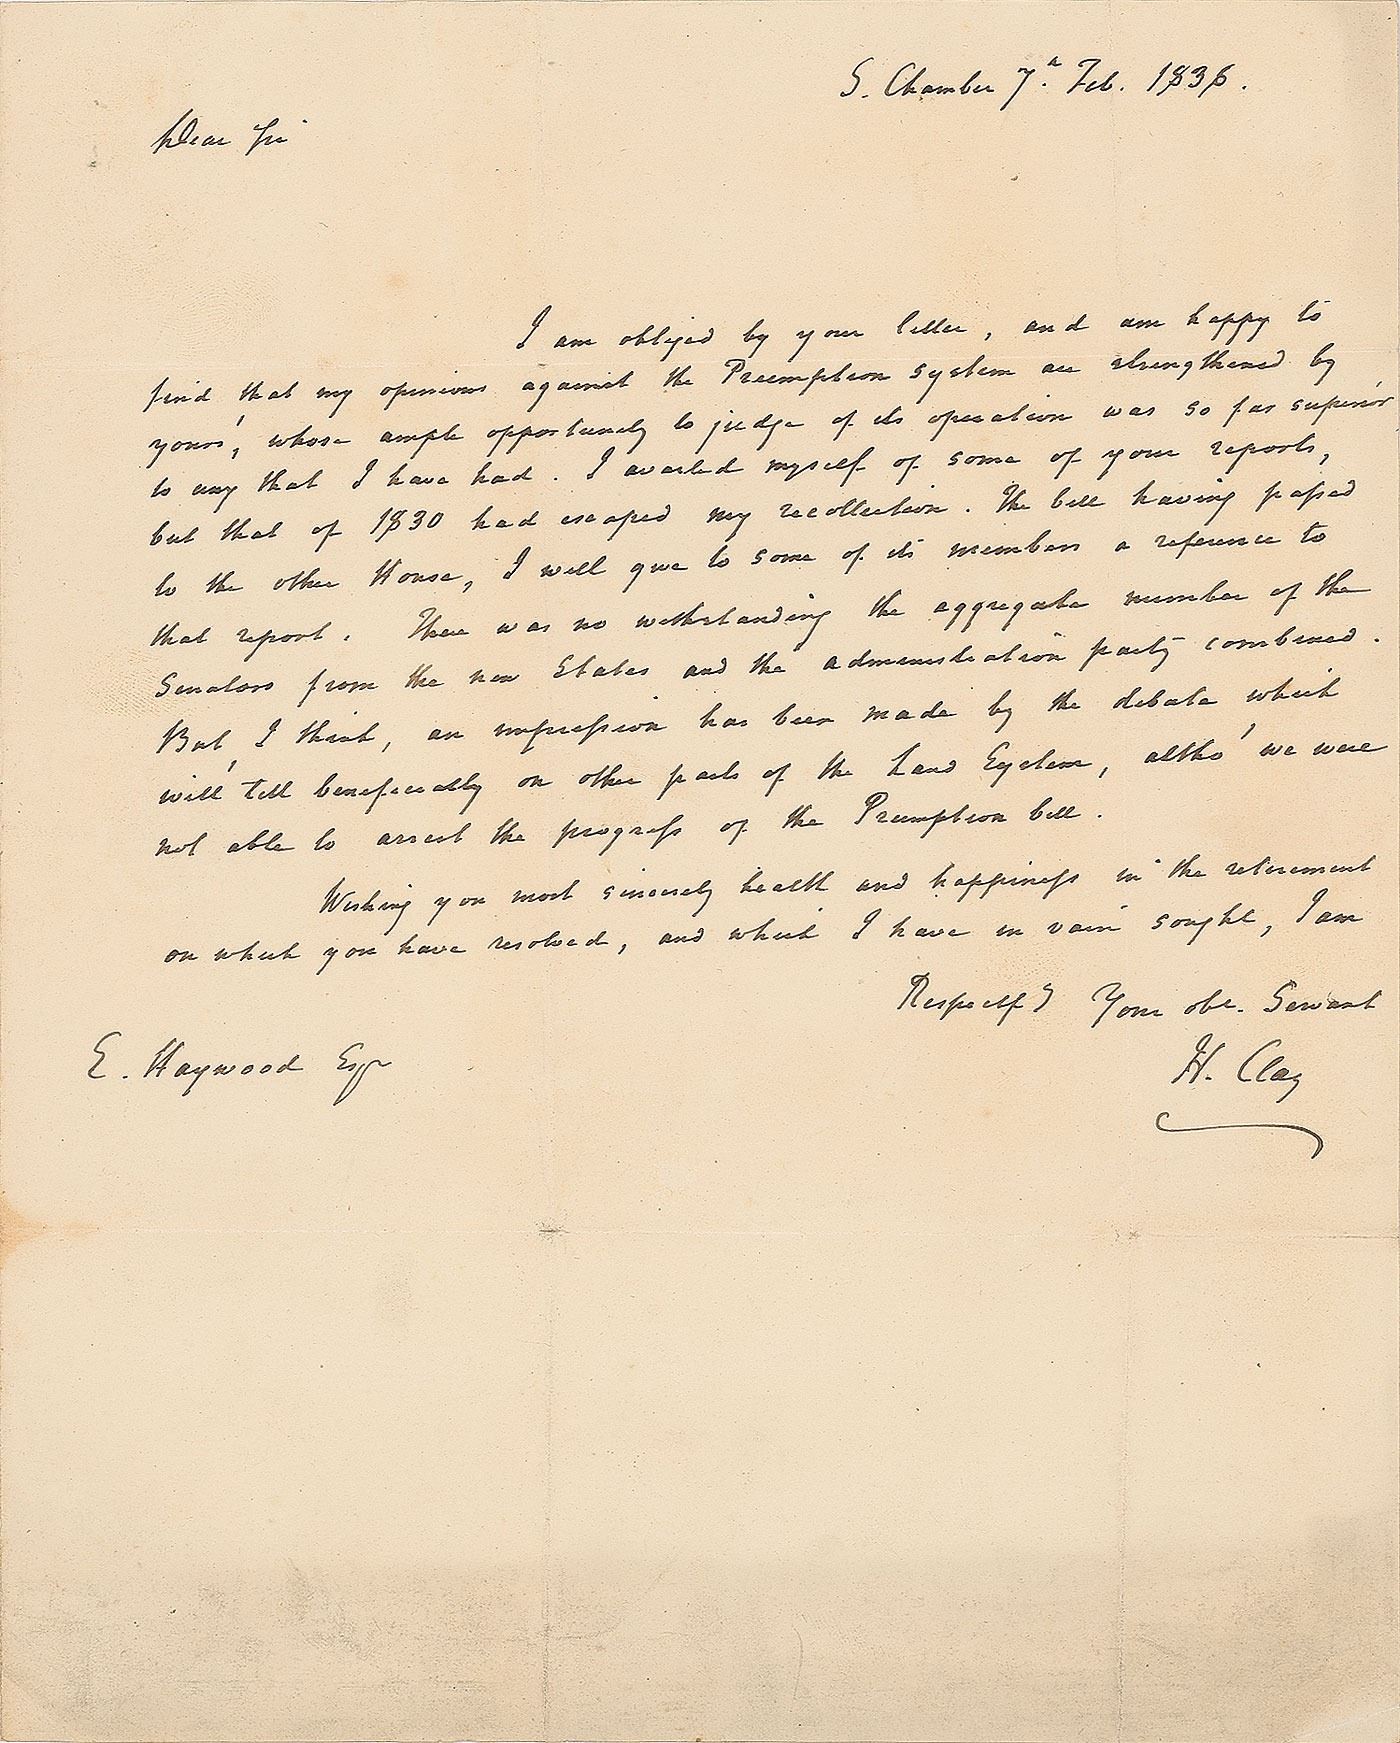 S. Chamber 7.h Feb. 1838.
Dear Sir
I am obliged by your letter, and am happy to
find that my opinions against the Preemption system are strengthened by
yours, whose ample opportunity to judge of its operation was so far superior
to any that I have had. I availed myself of some of your reports,
but that of 1830 had escaped my recollection. The bill having passed
to the other House, I will give to some of its members a reference to
that report. There was no withstanding the aggregate number of the
Senators from the new States and the administration party combined.
But, I think, an impression has been made by the debate which
will tell beneficially on other parts of the Land System, altho' we were
not able to arrest the progress of the Preemption bill.
Wishing you most sincerely health and happiness in the retirement
on which you have resolved, and which I have in vain sought, I am
Respectfy Your obt. Servant
E. Haywood Esqr
H. Clay